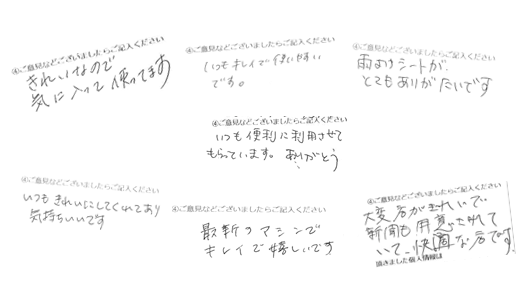 ④ご意見などございましたらご記入ください
きれいなので
気に入って使ってます
④ご意見などございましたらご記入ください
いつもキレイで使いやすい
です。
④ご意見などございましたらご記入ください
雨よけシートが、
とてもありがたいです
④ご意見などございましたらご記入ください
いつも便利に利用させて
もらっています。ありがとう
④ご意見などございましたらご記入ください
いつもきれいにしてくれてあり
気持ちいいです
④ご意見などございましたらご記入ください
最新のマシンで
キレイで嬉しいです
④ご意見などございましたらご記入ください
大変店がきれいで、
新聞も用意されて
いて、快適な店です。
頂きました個人情報は